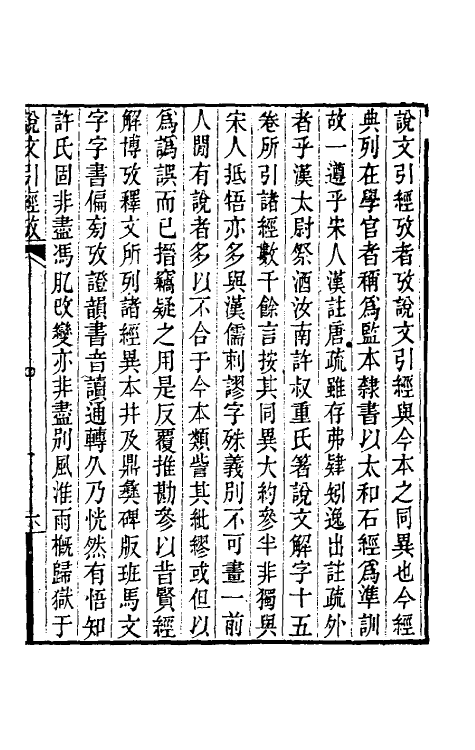 說文引經攷者攷說文引經與今本之同異也今經
典列在學官者稱爲監本隸書以太和石經爲準訓
故一遵乎宋人漢註唐疏雖存弗肄矧逸出註疏外
者乎漢太尉祭酒汝南許叔重氏箸說文解字十五
卷所引諸經數千餘言按其同異大約參半非獨與
宋人抵牾亦多與漢儒刺謬字殊義別不可畫一前
人閒有說者多以不合于今本類訾其紕繆或但以
爲譌誤而已搢竊疑之用是反覆推勘參以昔賢經
解博攷釋文所列諸經異本幷及鼎彝碑版班馬文
字字書偏旁攷證韻書音讀通轉久乃恍然有悟知
許氏固非盡馮肊改變亦非盡別風淮雨槪歸獄于
說文引經攷
六